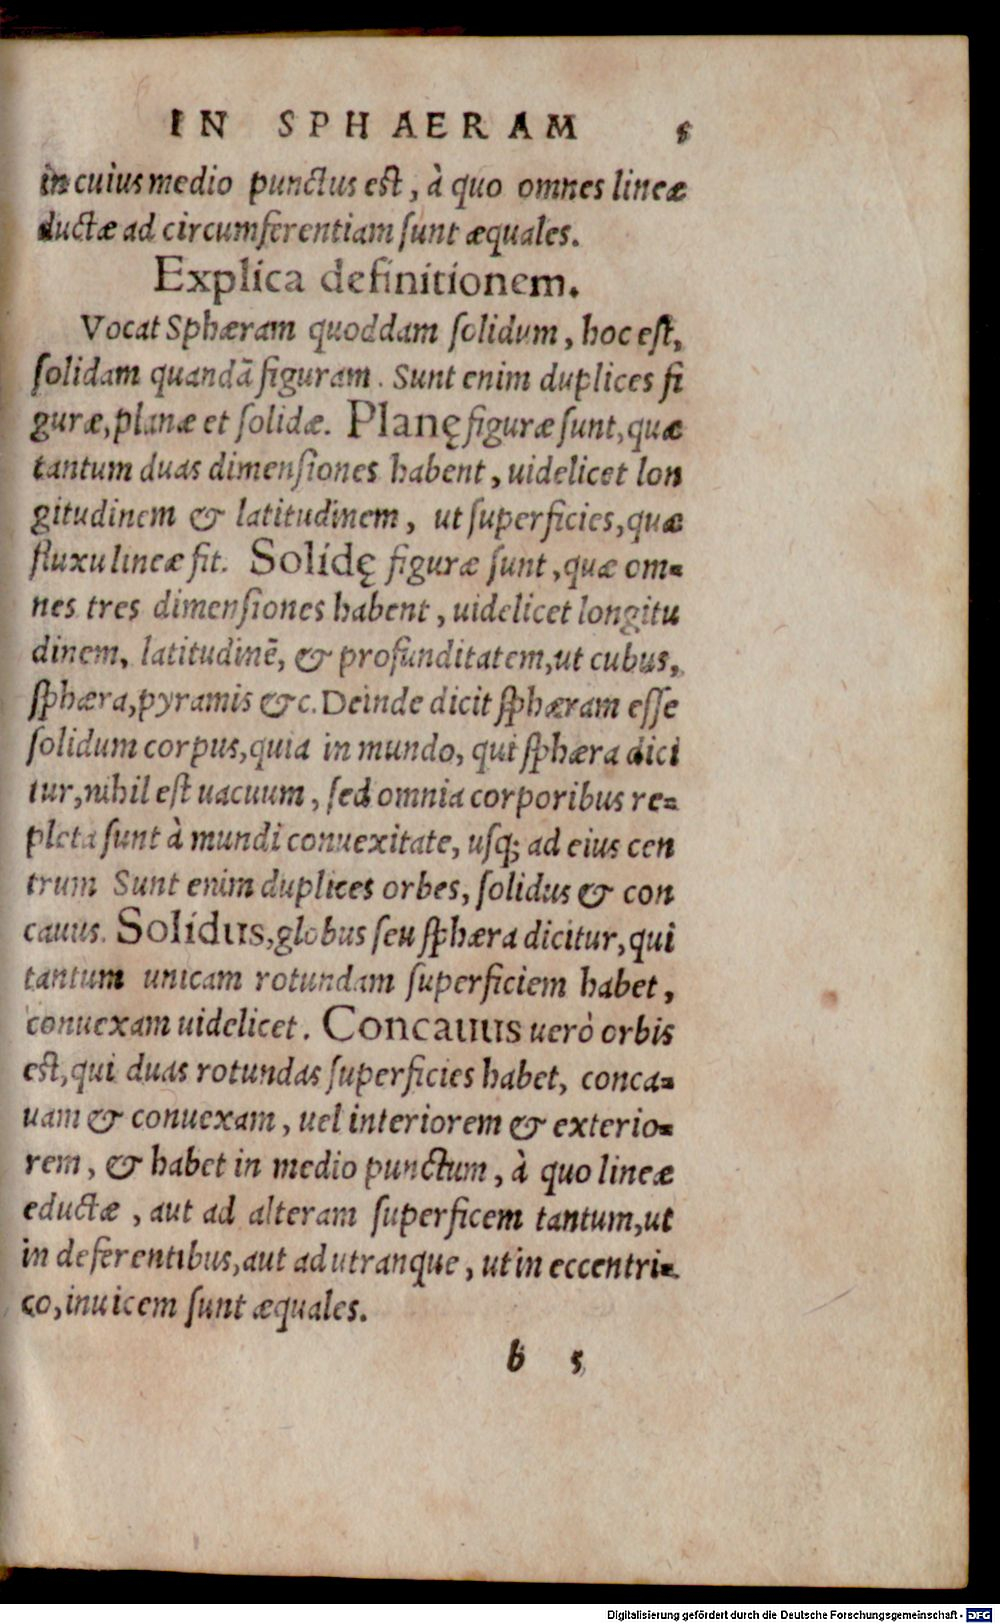 IN SPHAERAM 5
in cuius medio punctus est, à quo omnes lineæ
ductæ ad circumferentiam ſunt æquales.
Explica definitionem.
Vocat Sphæram quoddam ſolidum, hoc eſt,
ſolidam quandã figuram. Sunt enim duplices fi
guræ, planæ et ſolidæ. Planę figuræ ſunt, quæ
tantum duas dimenſiones habent, uidelicet lon
gitudinem & latitudinem, ut ſuperficies, quæ
fluxu lineæ fit. Solidę figuræ ſunt, quæ om=
nes tres dimenſiones habent, uidelicet longitu
dinem, latitudinẽ, & profunditatem, ut cubus,
ſphæra, pyramis &c. Deinde dicit ſphæram eſſe
ſolidum corpus, quia in mundo, qui ſphæra dici
tur, nihil eſt uacuum, ſed omnia corporibus re=
pleta ſunt à mundi conuexitate, uſq; ad eius cen
trum Sunt enim duplices orbes, ſolidus & con
cauus. Solidus, globus ſeu ſphæra dicitur, qui
tantum unicam rotundam ſuperficiem habet,
conuexam uidelicet. Concauus uerò orbis
eſt, qui duas rotundas ſuperficies habet, conca=
uam & conuexam, uel interiorem & exterio=
rem, & habet in medio punctum, à quo lineæ
eductæ, aut ad alteram ſuperficem tantum, ut
in deferentibus, aut ad utranque, ut in eccentri=
co, inuicem ſunt æquales.
b 5
Digitalisierung gefördert durch die Deutsche Forschungsgemeinschaft - DFG